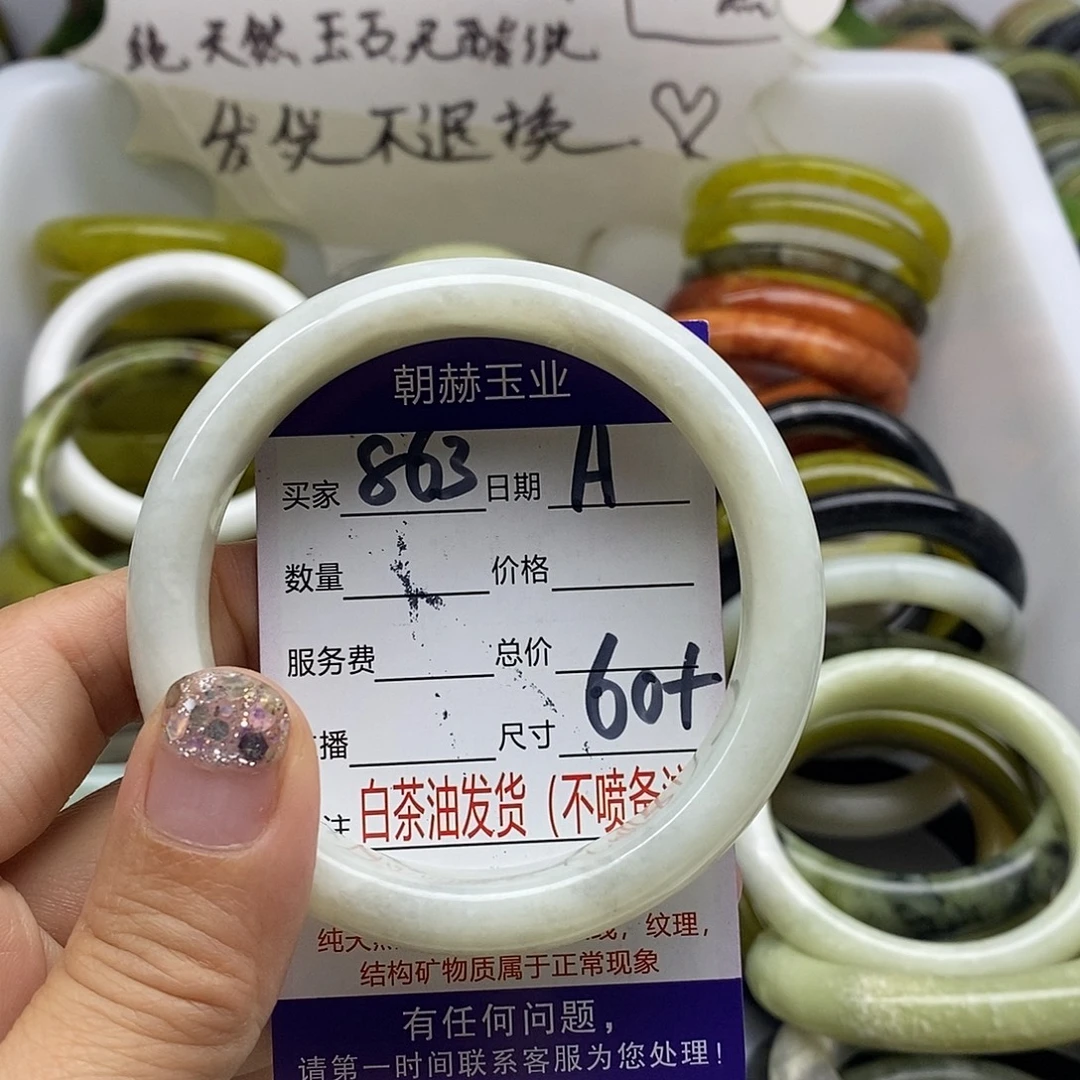 纯天然玉石无酸洗
发货不退换
朝赫玉业
买家 863 日期 A
数量 价格
服务费 总价
播 尺寸 60+
注 白茶油发货（不喷备注
纯天然 线，纹理，
结构矿物质属于正常现象
有任何问题，
请第一时间联系客服为您处理！